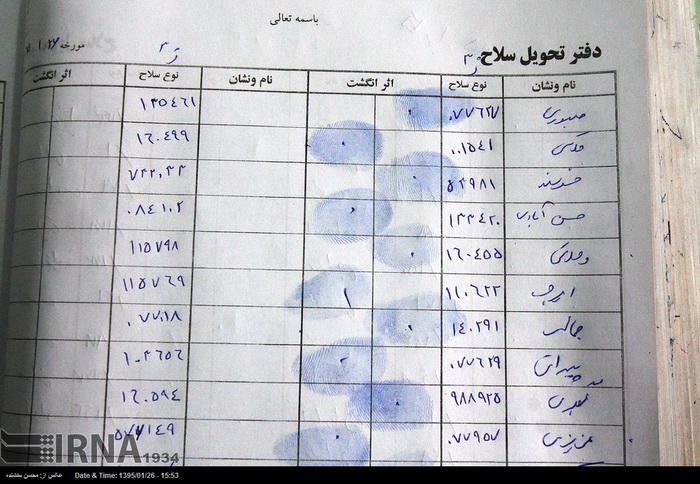 باسمه تعالی
دفتر تحویل سلاح
مورخه
نام ونشان نوع سلاح اثر انگشت نام ونشان نوع سلاح اثر انگشت
صبوری ۰۷۷۶۲۷ ۱۲۵۴۶۱
۰۰۱۵۴۱ ۱۶۰۴۹۹
خرسند ۵۴۹۸۱ ۷۲۲۰۲۲
حسن آبادی ۱۲۲۴۲۰ ۰۸۴۱۰۲
۱۶۰۴۵۵ ۱۱۵۷۹۸
ایرج ۱۱۰۶۲۲ ۱۱۵۷۶۹
جمالی ۱۴۰۲۹۱ ۰۷۷۰۱۸
پیرانی ۰۷۷۶۲۹ ۱۰۴۶۵۶
۹۸۸۹۲۵ ۱۶۰۵۹۴
۰۷۷۹۵۷ ۵۷۷۱۴۹
IRNA
1934
عکس از: محسن بخشنده Date & Time: 1395/01/26 - 15:53